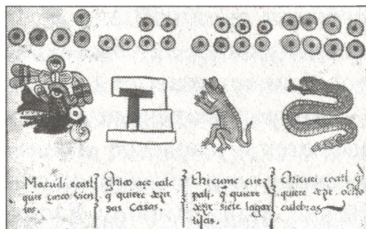 Macuili ecatl
çinco vien
tos.
Chico açe
q quiere dezir
Casas.
Chicume cuez
pali. q quiere
dezir siete lagar
tijas.
Chicuei coatl q
quiere dezir. ocho
culebras